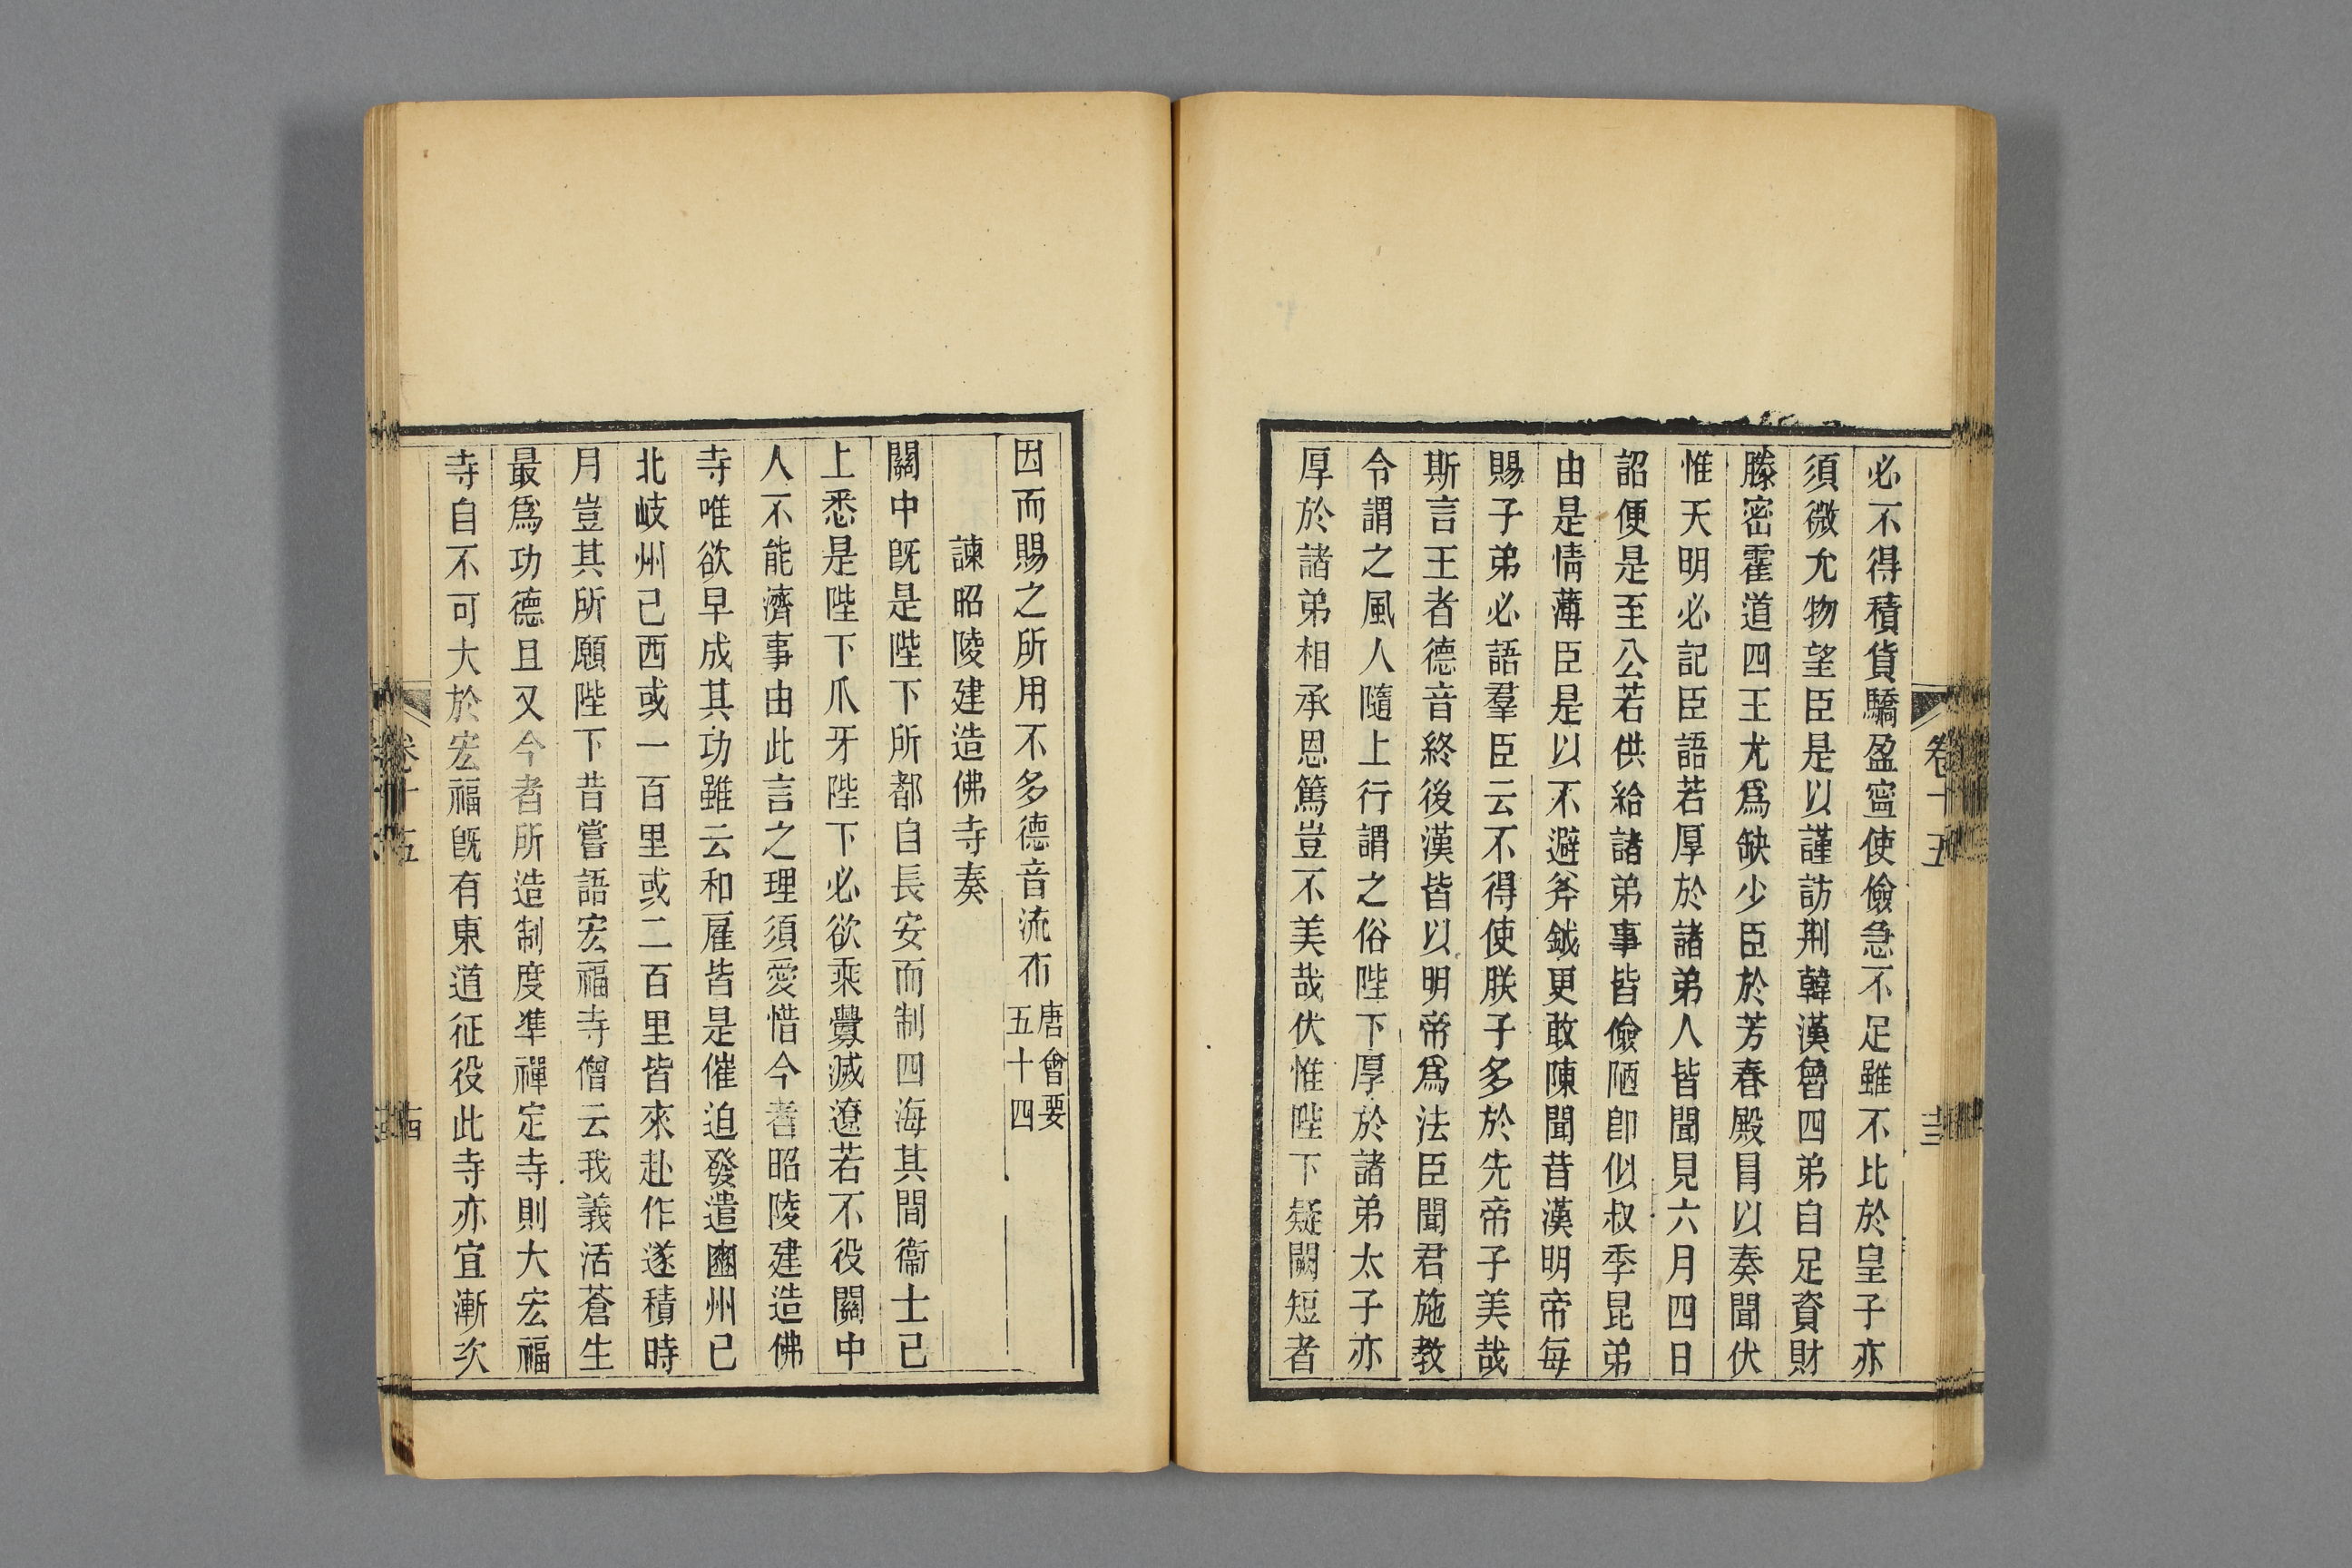 必不得積貨驕盈寍使儉急不足雖不比於皇子亦
須微允物望臣是以謹訪荆韓漢魯四弟自足資財
滕密霍道四王尤爲缺少臣於芳春殿目以奏聞伏
惟天明必記臣語若厚於諸弟人皆聞見六月四日
詔便是至公若供給諸弟事皆儉陋卽似叔季昆弟
由是情薄臣是以不避斧鉞更敢陳聞昔漢明帝每
賜子弟必語羣臣云不得使朕子多於先帝子美哉
斯言王者德音終後漢皆以明帝爲法臣聞君施教
令謂之風人隨上行謂之俗陛下厚於諸弟太子亦
厚於諸弟相承恩篤豈不美哉伏惟陛下疑闕短者
卷十五
因而賜之所用不多德音流布唐會要五十四
諫昭陵建造佛寺奏
關中既是陛下所都自長安而制四海其間衞士已
上悉是陛下爪牙陛下必欲乘釁滅遼若不役關中
人不能濟事由此言之理須愛惜今者昭陵建造佛
寺唯欲早成其功雖云和雇皆是催迫發遣豳州已
北岐州已西或一百里或二百里皆來赴作遂積時
月豈其所願陛下昔嘗語宏福寺僧云我義活蒼生
最爲功德且又今者所造制度準禪定寺則大宏福
寺自不可大於宏福既有東道征役此寺亦宜漸次
卷十五